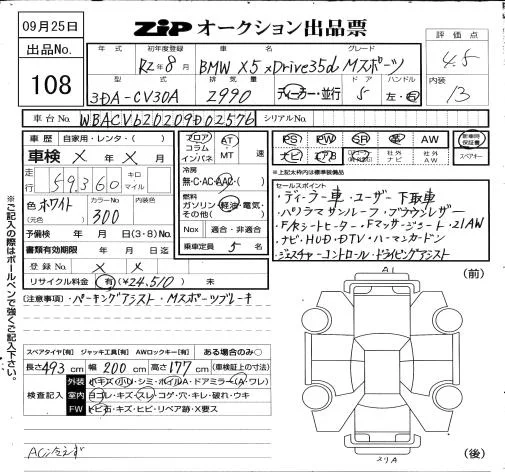 09月25日
ZIP オークション出品票
出品No.
108
評価点
4.5
内装
13
年式 初年度登録 車名 グレード
R2年8月 BMW X5 xDrive35d Mスポーツ
型式 排気量 ドア ハンドル
3DA-CV30A 2990 ディーラー・並行 5 左・右
車台No. WBACV620209D02576 シリアルNo.
車歴 自家用・レンタ( )
車検 × 年 × 月
走行 59,360 キロ マイル
色 ホワイト (元色) カラーNo 300
予備検 年 月 日(3・8)No.
書類有効期限 年 月 日迄
登録No. × ×
リサイクル料金 有(¥24,510) 未
フロア コラム インパネ AT MT 速
冷房
無・C・AC・AAC・( )
燃料
ガソリン・軽油・電気・その他( )
Nox 適合・非適合
乗車定員 5 名
PS PW SR 革 AW 新車時保証書
ナビ エアB 社外ナビ 社外AW スペアキー
※上記太枠内は標準装備品
セールスポイント
・ディーラー車・ユーザー下取車
・パノラマサンルーフ・ブラウンレザー
・F/Rシートヒーター・Fマッサージシート・21AW
・ナビ・HUD・DTV・ハーマンカードン
・ジェスチャーコントロール・ドライビングアシスト
(注意事項)・パーキングアシスト・Mスポーツブレーキ
スペアタイヤ[有] ジャッキ工具[有] AWロックキー[有] ある場合のみ○
長さ 493 cm 幅 200 cm 高さ 177 cm (車検証上の寸法)
検査記入
外装 小キズ(小U)・シミ・ホイルA・ドアミラー(A・ワレ)
室内 ヨゴレ・キズ・スレ・コゲ・穴・キレ・破れ・ウキ
FW トビ石・キズ・ヒビ・リペア跡・X要ス
AC冷えず
(前)
A1
(後)
※ご記入の際はボールペンで強くご記入下さい。